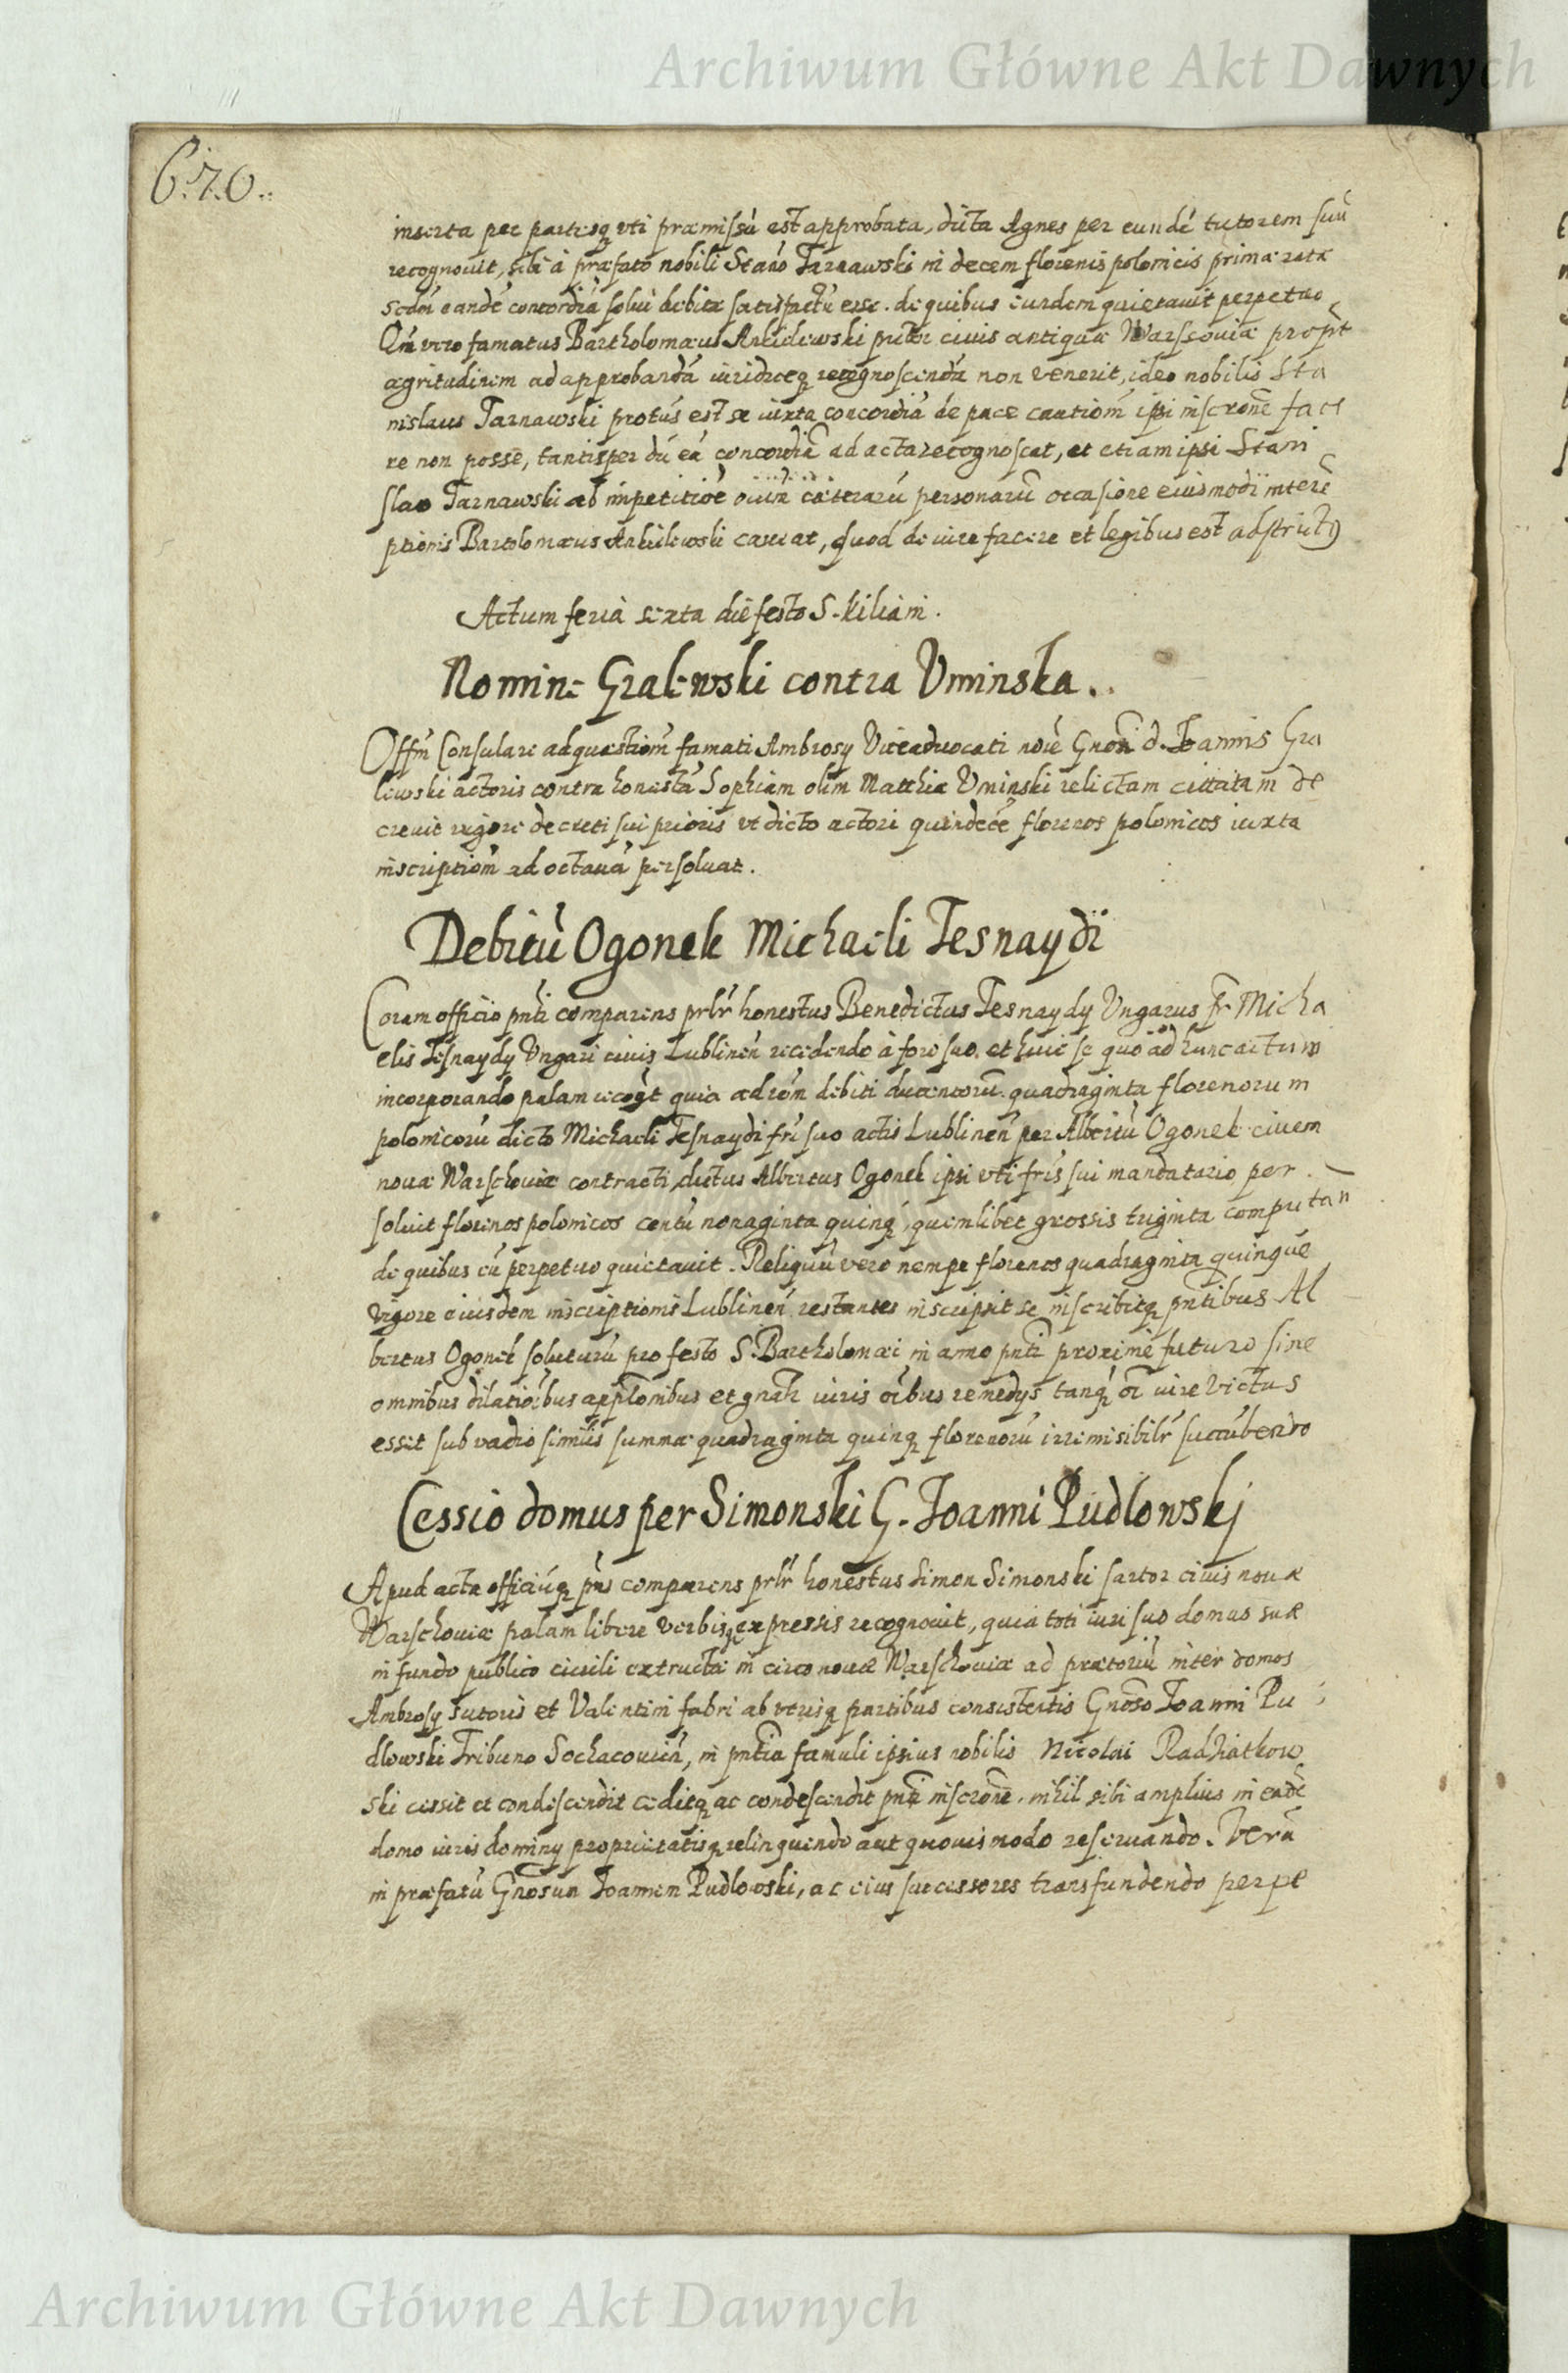 Archiwum Główne Akt Dawnych
670..
inserta per partesq vti præmissũ est approbata, dicta Agnes per eundẽ tutorem suũ
recognouit, sibi à præfato nobili Stanõ Tarnawski in decem florenis polonicis primæ ratæ
scdm eandẽ concordiã solui debitæ satisfactũ esse. de quibus eundem quietauit perpetuo
Qm̃ vero famatus Bartholomæus Ankielewski pictor ciuis antiquæ Warscouiæ propt
ægritudinem ad approbandã recognoscendã non venerit, ideo nobilis Sta
nislaus Tarnawski est se iuxta concordiã de pace cautiom̃ ipsi inscronẽ face
re non posse, tantisper dũ eã concordiã ad acta recognoscat, et etiam ipsi Stani
slao Tarnawski ab impetitiõe cæterarũ personarũ occasione eiusmodi interẽ
ptionis Bartolomæus Ankielewski caueat, quod de iure facere et legibus est adstrictq
Actum feria sexta die festo S. Kiliani.
Nomine Gralewski contra Vminska..
Offm̃ Consulare ad quæstiom̃ famati Ambrosy Viceaduocati noiẽ Gnosi d. Ioannis Gra
lewski actoris contra honestã Sophiam olim Matthiæ Vminski relictam cittatam de
creuit vigore decreti sui prioris vt dicto actori quindecẽ florenos polonicos iuxta
inscriptiom̃ ad octauã persoluat.
Debitũ Ogonek Michaeli Tesnaydi
Coram officio pnti comparens prlr̃ honestus Benedictus Tesnaydy Vngarus fr̃ Micha
elis Tesnaydy Vngari ciuis Lublineñ recedendo à foro suo. et huic se quo ad hunc actum
incorporando palam recogt quia ad rõm debiti ducentorũ quadraginta florenorum
polonicorũ dicto Michaeli Tesnaydi frĩ suo actis Lublineñ per Albertũ Ogonek ciuem
nouæ Warschouiæ contracti, dictus Albertus Ogonek ipsi vti fris sui mandatario per
soluit florenos polonicos centũ nonaginta quinq, quemlibet grossis triginta computan
de quibus eũ perpetuo quietauit. Reliquũ vero nempe florenos quadraginta quinque
vigore eiusdem inscriptionis Lublineñ restantes inscripsit se inscribitq pntibus Al
bertus Ogonek soluturũ pro festo S. Bartholomæi in anno pnti proxime futuro sine
omnibus dilatioĩbus applonibus et gnali iuris oĩbus remedys tanq oĩ iure victus
esset sub vadio similis summæ quadraginta quinq florenorũ irremisibilr̃ succũbendo
Cessio domus per Simonski G. Ioanni Pudlowskj
Apud acta officiũq pns comparens prlr̃ honestus Simon Simonski sartor ciuis nouæ
Warschouiæ palam libere verbisq expressis recognouit, quia toti iuri suo domus suæ
in fundo publico ciuili extructæ in circo nouæ Warschouiæ ad prætoriũ inter domos
Ambrosy sutoris et Valentini fabri ab vtrisq partibus consistentis Gnoso Ioanni Pu
dlowski Tribuno Sochacouieñ, in pntia famuli ipsius nobilis Nicolai Radziatkow
ski cessit et condescendit ceditq ac condescendit pnti inscronẽ. nihil sibi amplius in eadẽ
domo iuris dominy proprietatisq relinquendo aut quouismodo reseruando. Verũ
in præfatũ Gnosum Ioannem Pudlowski, ac eius successores transfundendo perpe
Archiwum Główne Akt Dawnych